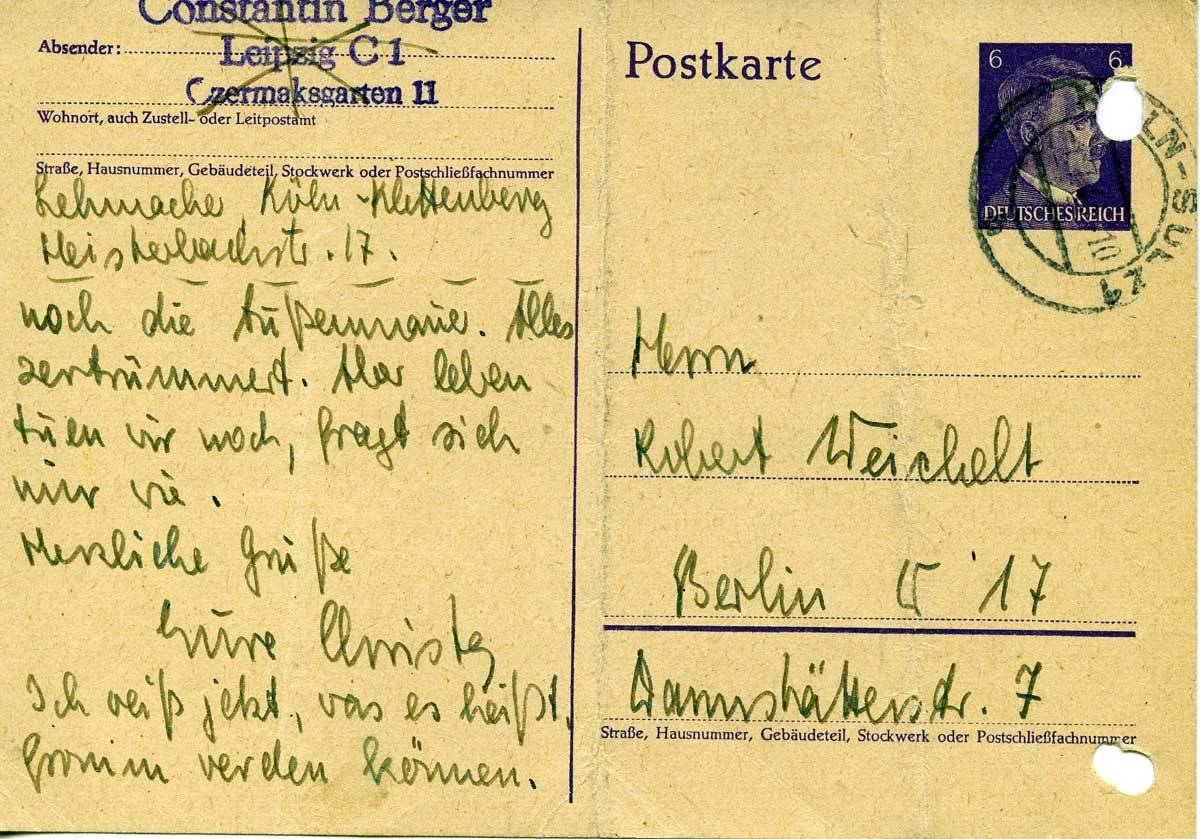 Constantin Berger
Absender:
Leipzig C1
Czermaksgarten 11
Wohnort, auch Zustell- oder Leitpostamt
Straße, Hausnummer, Gebäudeteil, Stockwerk oder Postschließfachnummer
Lehmacher, Köln-Klettenberg
Heisterbachstr. 17.
noch die Außenmauer. Alles
zertrümmert. Aber leben
tuen wir noch, fragt sich
nur wie.
Herzliche Grüße
Eure Christa
Ich weiß jetzt, was es heißt,
fromm werden können.
Postkarte
6 6
DEUTSCHES REICH
KÖLN-SÜLZ 1
Herrn
Robert Weichelt
Berlin W 17
Darmstätterstr. 7
Straße, Hausnummer, Gebäudeteil, Stockwerk oder Postschließfachnummer